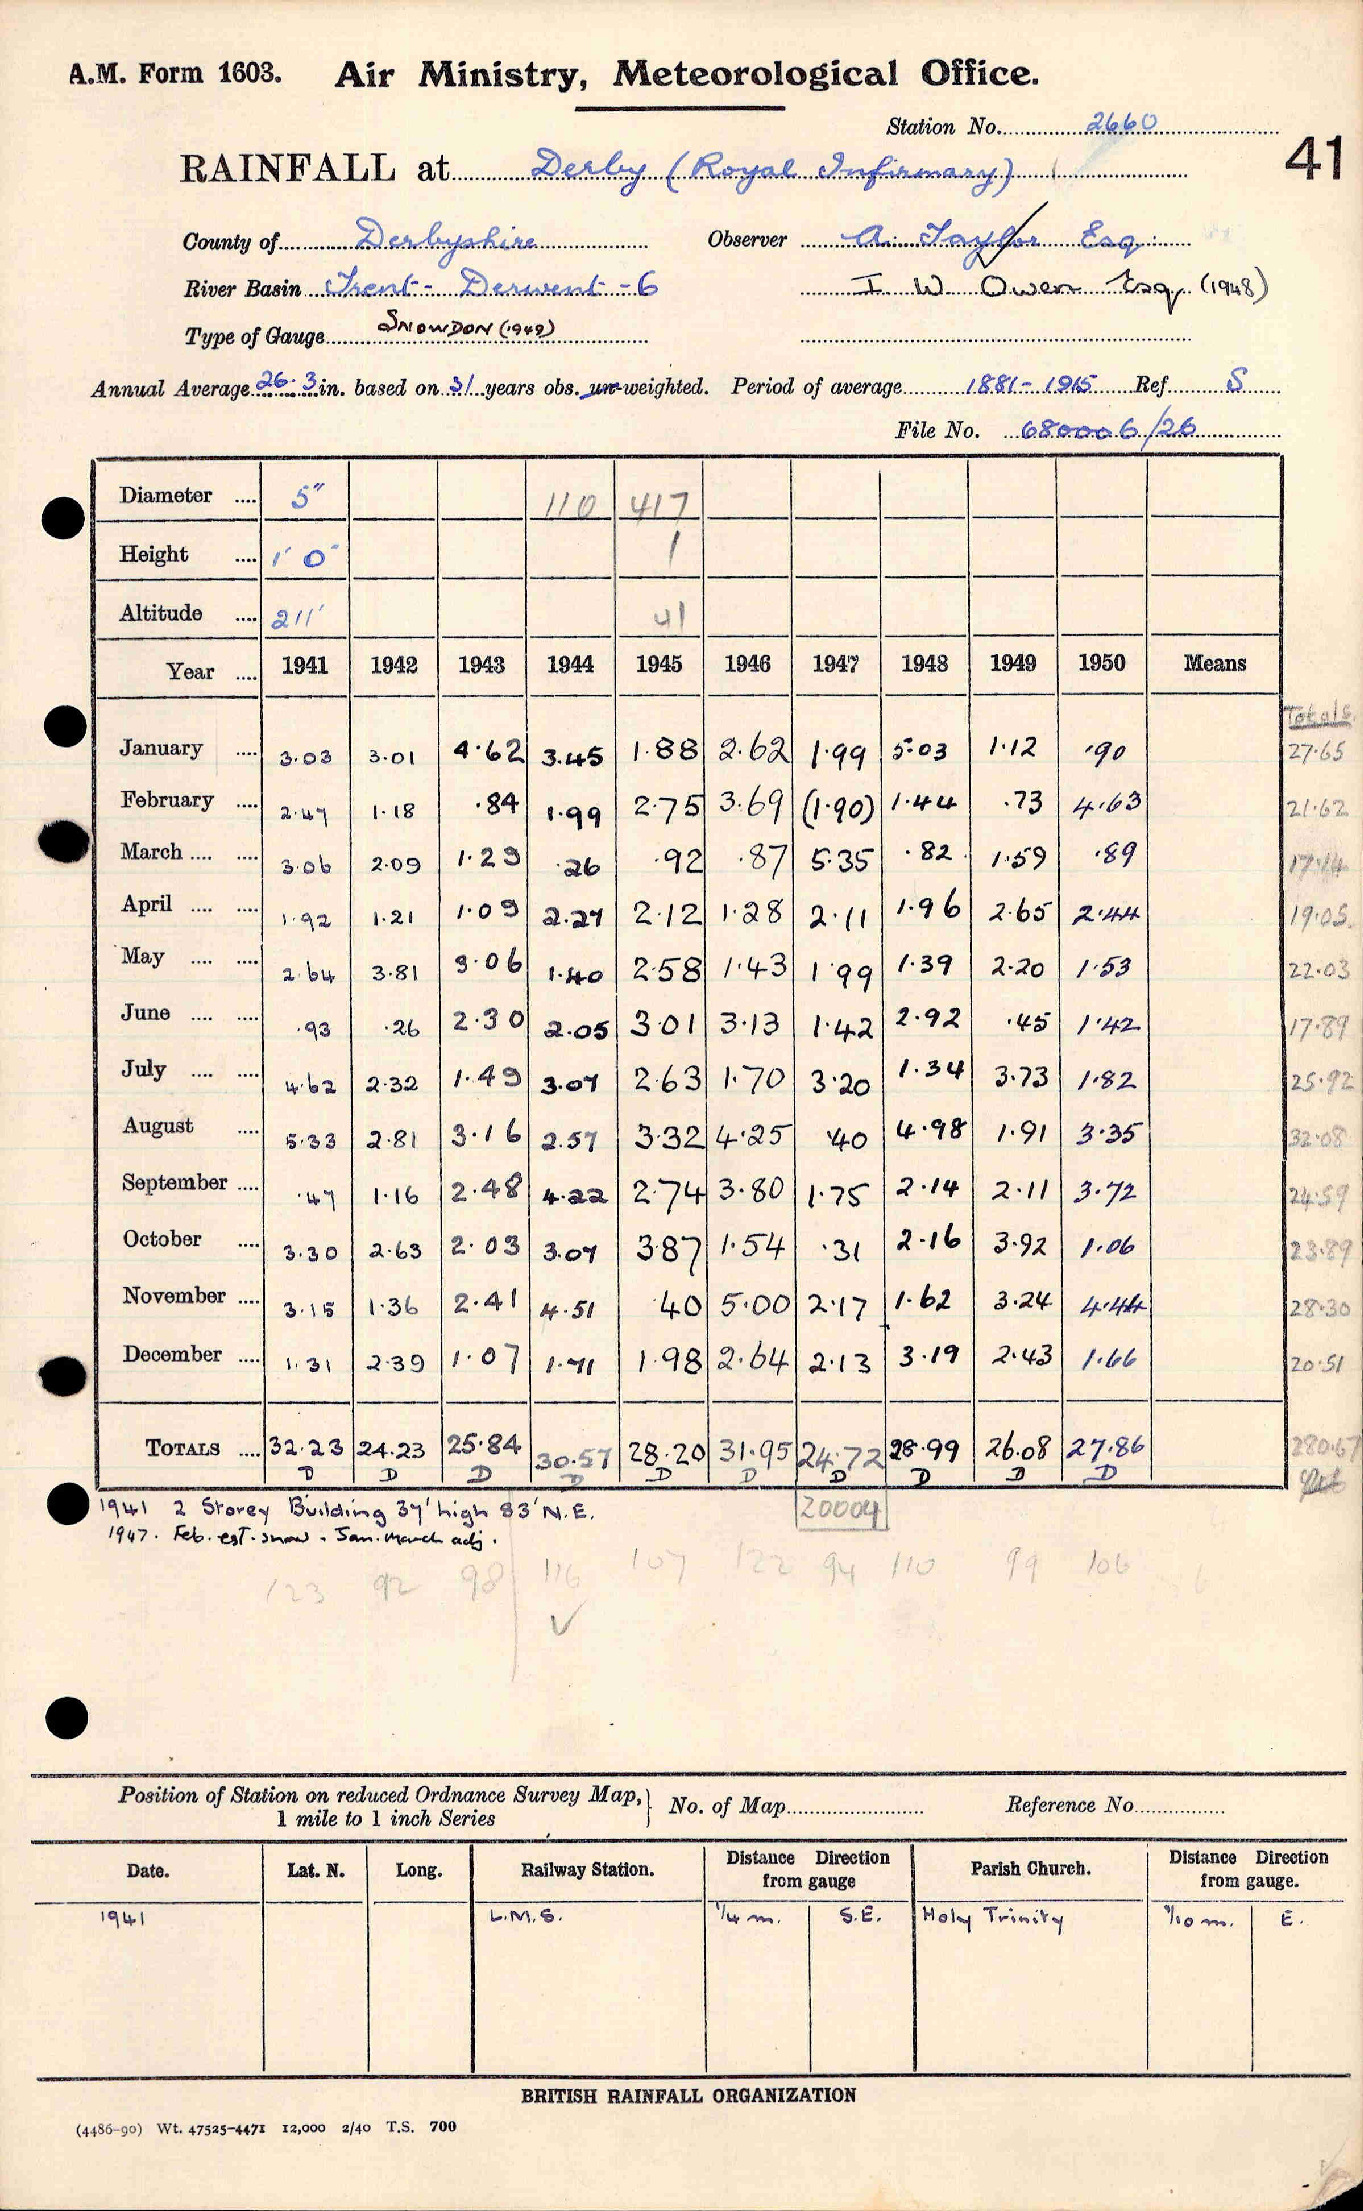 A.M. Form 1603. Air Ministry, Meteorological Office.
Station No. 2660
41
RAINFALL at Derby (Royal Infirmary)
County of Derbyshire Observer A. Taylor Esq.
River Basin Trent - Derwent - 6 I W Owen Esq (1948)
Type of Gauge SNOWDON (1949)
Annual Average 26.3 in. based on 31 years obs. un-weighted. Period of average 1881-1915 Ref S
File No. 680006/26
Diameter .... 5" 110 417
Height .... 1' 0" 1
Altitude .... 211' 41
Year .... 1941 1942 1943 1944 1945 1946 1947 1948 1949 1950 Means
Totals
January .... 3.03 3.01 4.62 3.45 1.88 2.62 1.99 5.03 1.12 .90 27.65
February .... 2.47 1.18 .84 1.99 2.75 3.69 (1.90) 1.44 .73 4.63 21.62
March .... .... 3.06 2.09 1.29 .26 .92 .87 5.35 .82 1.59 .89 17.14
April .... .... 1.92 1.21 1.09 2.27 2.12 1.28 2.11 1.96 2.65 2.44 19.05
May .... .... 2.64 3.81 3.06 1.40 2.58 1.43 1.99 1.39 2.20 1.53 22.03
June .... .... .93 .26 2.30 2.05 3.01 3.13 1.42 2.92 .45 1.42 17.89
July .... .... 4.62 2.32 1.49 3.07 2.63 1.70 3.20 1.34 3.73 1.82 25.92
August .... 5.33 2.81 3.16 2.57 3.32 4.25 .40 4.98 1.91 3.35 32.08
September .... .47 1.16 2.48 4.22 2.74 3.80 1.75 2.14 2.11 3.72 24.59
October .... 3.30 2.63 2.03 3.07 3.87 1.54 .31 2.16 3.92 1.06 23.89
November .... 3.15 1.36 2.41 4.51 .40 5.00 2.17 1.62 3.24 4.44 28.30
December .... 1.31 2.39 1.07 1.71 1.98 2.64 2.13 3.19 2.43 1.66 20.51
TOTALS .... 32.23 24.23 25.84 30.57 28.20 31.95 24.72 28.99 26.08 27.86 280.67
D D D D D D D D D D
1941 2 Storey Building 37' high 83' N.E. 20004
1947. Feb. est. snow. Jan. March adj.
123 92 98 116 107 122 94 110 99 106
Position of Station on reduced Ordnance Survey Map, 1 mile to 1 inch Series No. of Map Reference No
Date. Lat. N. Long. Railway Station. Distance Direction from gauge Parish Church. Distance Direction from gauge.
1941 L.M.S. 1/4 m. S.E. Holy Trinity 1/10 m. E.
BRITISH RAINFALL ORGANIZATION
(4486-90) Wt. 47525-4471 12,000 2/40 T.S. 700